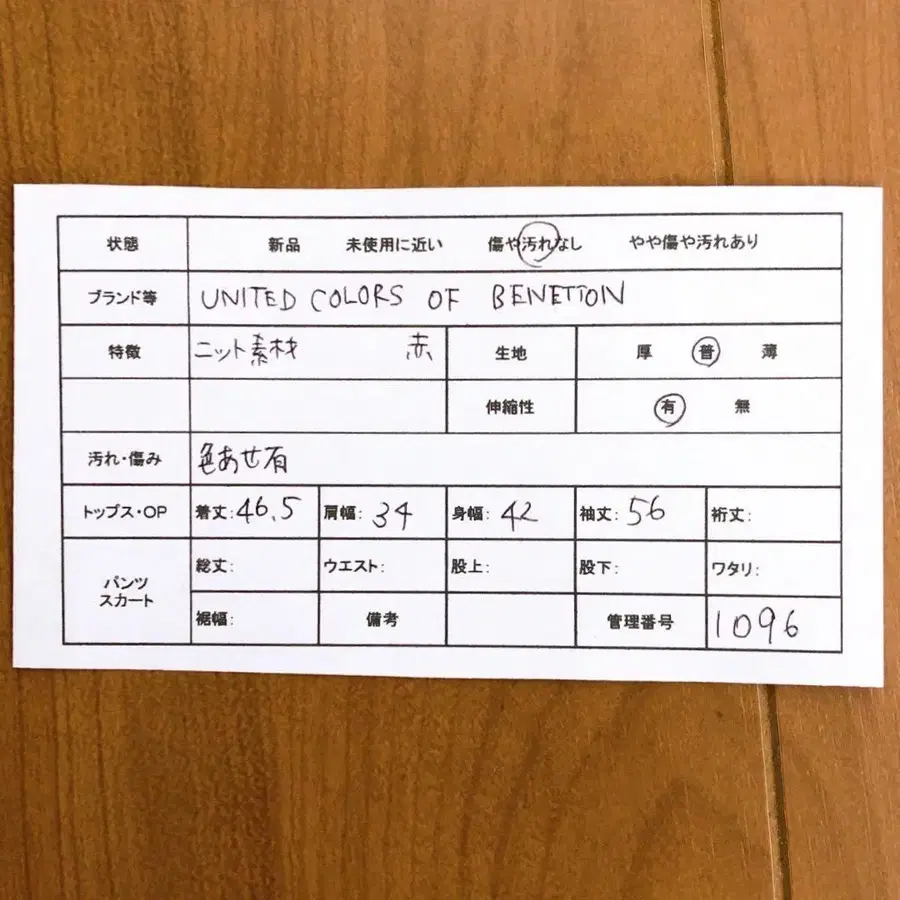 状態 新品 未使用に近い 傷や汚れなし やや傷や汚れあり
ブランド等 UNITED COLORS OF BENETTON
特徴 ニット素材 赤 生地 厚 普 薄
伸縮性 有 無
汚れ・傷み 色あせ有
トップス・OP 着丈:46.5 肩幅:34 身幅:42 袖丈:56 裄丈:
パンツ スカート 総丈: ウエスト: 股上: 股下: ワタリ:
裾幅: 備考 管理番号 1096